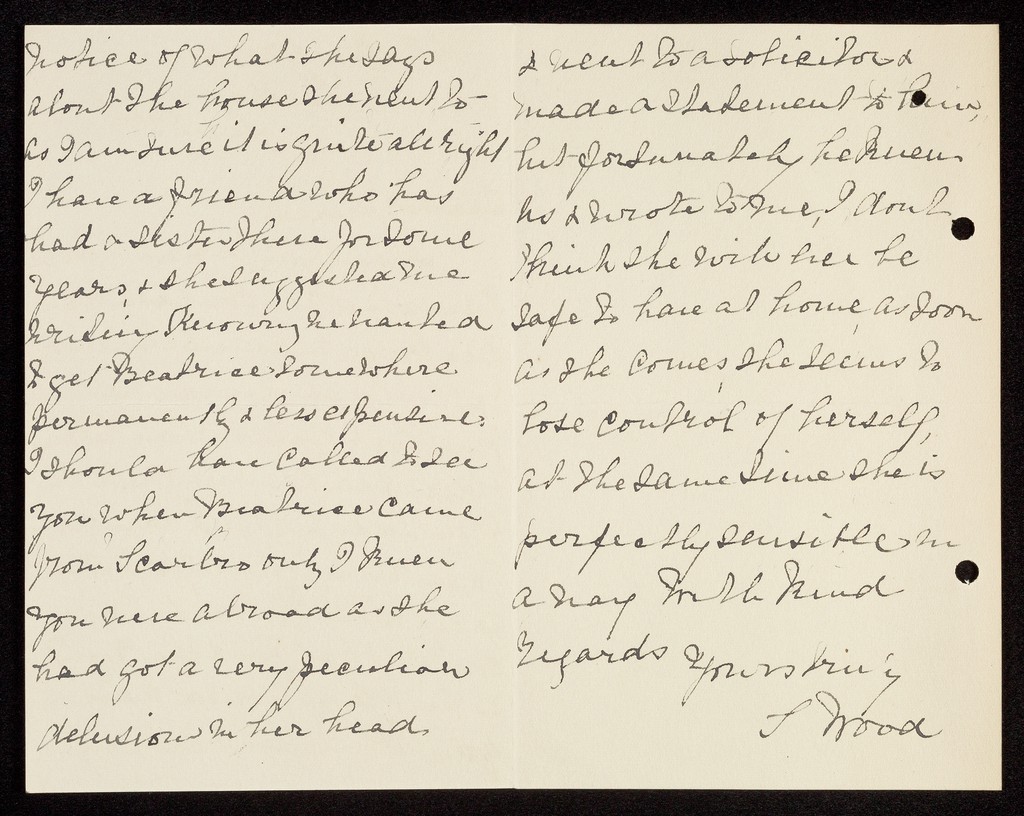 notice of what she says
about the house she went to
as I am sure it is quite all right
I have a friend who has
had a sister there for some
years, & she suggested me
writing knowing we wanted
to get Beatrice somewhere
permanently & less expensive.
I should have called to see
you when Beatrice came
from Scarbro only I knew
you were abroad as she
had got a very peculiar
delusion in her head
& went to a solicitor &
made a statement to him,
but fortunately he knew
us & wrote to me, I dont
think she will ever be
safe to have at home, as soon
as she comes, she seems to
lose control of herself,
at the same time she is
perfectly sensible in
a way With kind
regards Yours truly
S Wood